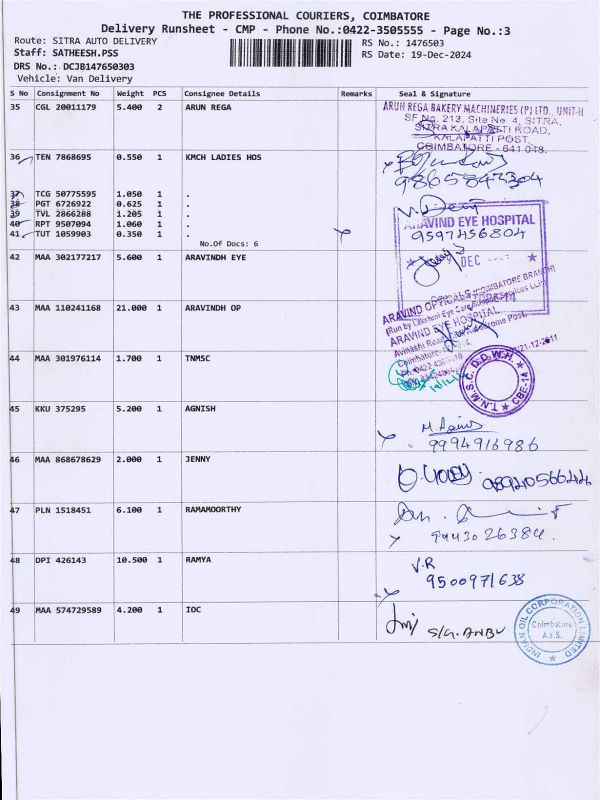 THE PROFESSIONAL COURIERS, COIMBATORE
Delivery Runsheet - CMP - Phone No.:0422-3505555 - Page No.:3
Route: SITRA AUTO DELIVERY
RS No.: 1476503
Staff: SATHEESH.PSS
RS Date: 19-Dec-2024
DRS No.: DCJB147650303
Vehicle: Van Delivery
S No Consignment No Weight PCS Consignee Details Remarks Seal & Signature
35 CGL 20011179 5.400 2 ARUN REGA
ARUN REGA BAKERY MACHINERIES (P) LTD., UNIT-II
SF No. 213, Site No 4, SITRA,
SITRA KALAPATTI ROAD,
KALAPATTI POST,
COIMBATORE - 641 048.
36 TEN 7868695 0.550 1 KMCH LADIES HOS
37 TCG 50775595 1.050 1 .
38 PGT 6726922 0.625 1 .
39 TVL 2866288 1.205 1 .
40 RPT 9507094 1.060 1 .
41 TUT 1059903 0.350 1 .
No.Of Docs: 6
ARAVIND EYE HOSPITAL
9597456804
42 MAA 302177217 5.600 1 ARAVINDH EYE
DEC
43 MAA 110241168 21.000 1 ARAVINDH OP
ARAVIND OPTICALS (COIMBATORE BRANCH)
ARAVIND EYE HOSPITAL
44 MAA 301976114 1.700 1 TNMSC
T.N.M.S.C. D.D.W.H. CBE-14
45 KKU 375295 5.200 1 AGNISH
9994916986
46 MAA 868678629 2.000 1 JENNY
47 PLN 1518451 6.100 1 RAMAMOORTHY
9443026384.
48 DPI 426143 10.500 1 RAMYA
V.R
9500971638
49 MAA 574729589 4.200 1 IOC
S/G. ANBU
INDIAN OIL CORPORATION LIMITED
Coimbatore
A.F.S.